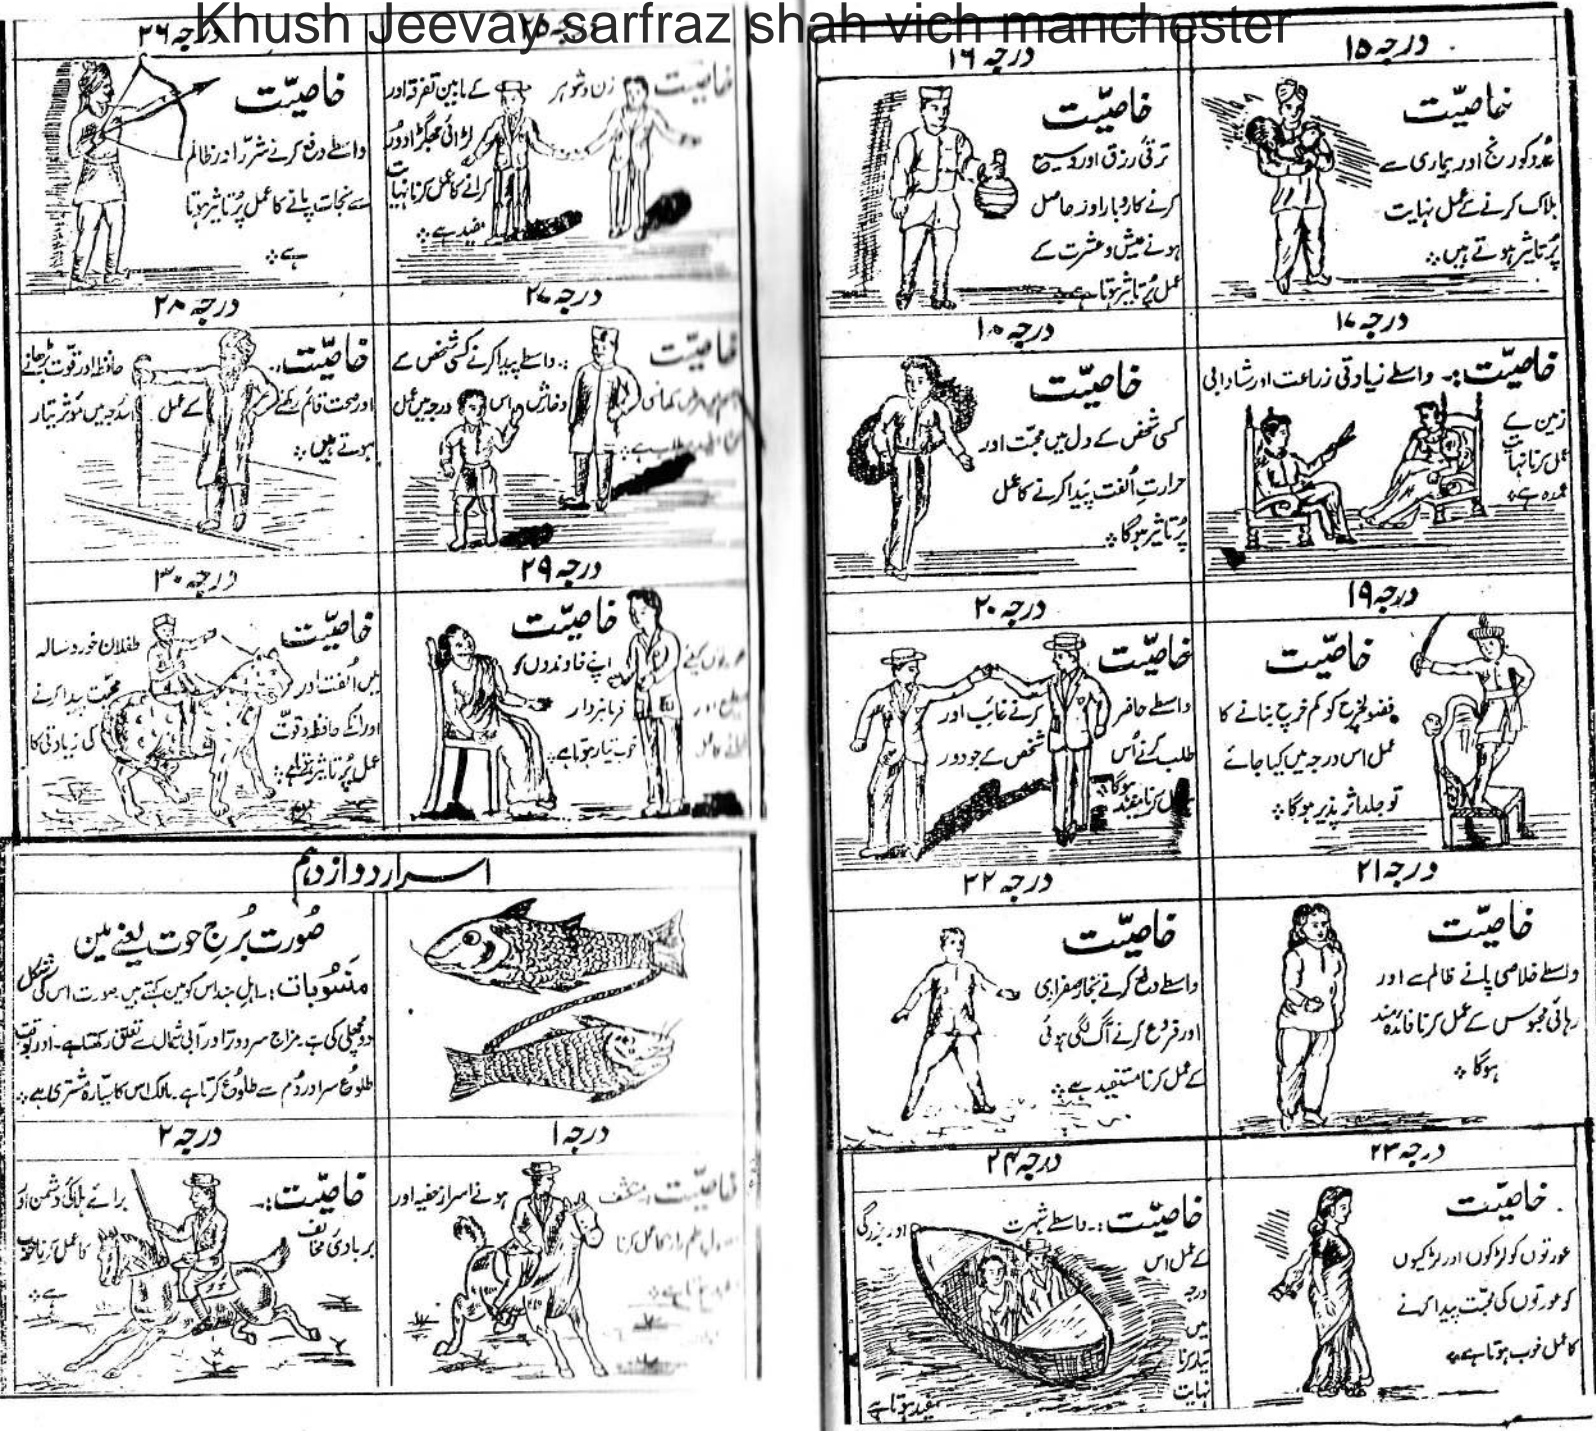 Khush Jeevay sarfraz shah vich manchester
درجہ ۱۵
خاصیّت
عدو کو رنج اور بیماری سے
ہلاک کرنے کے عمل نہایت
پُر تاثیر ہوتے ہیں ۔:
درجہ ۱۶
خاصیّت
ترقی رزق اور وسیع
کرنے کاروبار اور حاصل
ہونے عیش و عشرت کے
عمل پُر تاثیر ہوتا ہے
درجہ ۱۷
خاصیّت :۔ واسطے زیادتی زراعت اور شادابی
زمین کے
عمل کرنا نہایت
عمدہ ہے
درجہ ۱۸
خاصیّت
کسی شخص کے دل میں محبّت اور
حرارتِ اُلفت پیدا کرنے کا عمل
پُر تاثیر ہوگا ۔:
درجہ ۱۹
خاصیّت
فضولخرچ کو کم خرچ بنانے کا
عمل اس درجہ میں کیا جائے
تو جلد اثر پذیر ہوگا ۔:
درجہ ۲۰
خاصیّت
واسطے حاضر کرنے غائب اور
طلب کرنے اُس شخص کے جو دور
ہو عمل کرنا مفید ہوگا
درجہ ۲۱
خاصیّت
واسطے خلاصی پانے ظالم سے اور
رہائی محبوس کے عمل کرنا فائدہ مند
ہوگا ۔:
درجہ ۲۲
خاصیّت
واسطے دفع کرنے بخار صفراوی
اور فروع کرنے آگ لگی ہوئی
کے عمل کرنا مستفید ہے ۔:
درجہ ۲۳
خاصیّت
عورتوں کو لڑکوں اور لڑکیوں
کو عورتوں کی محبّت پیدا کرنے
کا عمل خوب ہوتا ہے ۔:
درجہ ۲۴
خاصیّت :۔ واسطے شہرت اور بزرگی
کے عمل اس
درجہ
میں
تیار کرنا
نہایت
مفید ہوتا ہے
درجہ ۲۵
خاصیّت زن و شوہر کے مابین تفرقہ اور
لڑائی جھگڑا اور دُور
کرانے کا عمل کرنا نہایت
مفید ہے ۔:
درجہ ۲۶
خاصیّت
واسطے دفع کرنے شرّ اور ظالم
سے نجات پانے کا عمل پُر تاثیر ہوتا
ہے ۔:
درجہ ۲۷
خاصیّت :۔ واسطے پیدا کرنے کسی شخص کے
و خارش اس درجہ میں عمل
مطلب ہے ۔:
درجہ ۲۸
خاصیّت :۔ حافظہ اور قوّت بڑھانے
اور صحت قائم رکھنے کے عمل درجہ میں مؤثر تیار
ہوتے ہیں ۔:
درجہ ۲۹
خاصیّت
اپنے خاوندوں کو
فرمانبردار
خوب تیار ہوتا ہے ۔:
درجہ ۳۰
خاصیّت طفلان خورد سالہ
میں اُلفت اور محبّت پیدا کرنے
اور انکے حافظہ و قوّت کی زیادتی کا
عمل پُر تاثیر
اسرار دوازدہم
صُورت بُرج حوت یعنے مین
منسُوبات :۔ اہل ہند اس کو مین کہتے ہیں صورت اس کی شکل
دو مچھلی کی ہے مزاج سرد و تر اور آبی شمال سے تعلق رکھتا ہے۔ اور بوقت
طلوُع سر اور دُم سے طلوُع کرتا ہے۔ مالک اس کا سیّارہ مشتری ہے ۔:
درجہ ۱
خاصیّت منکشف ہونے اسرار خفیہ اور
درجہ ۲
خاصیّت :۔ برائے ہلاکی دشمن اور
بربادی مخالف کا عمل کرنا خوب
ہے ۔: